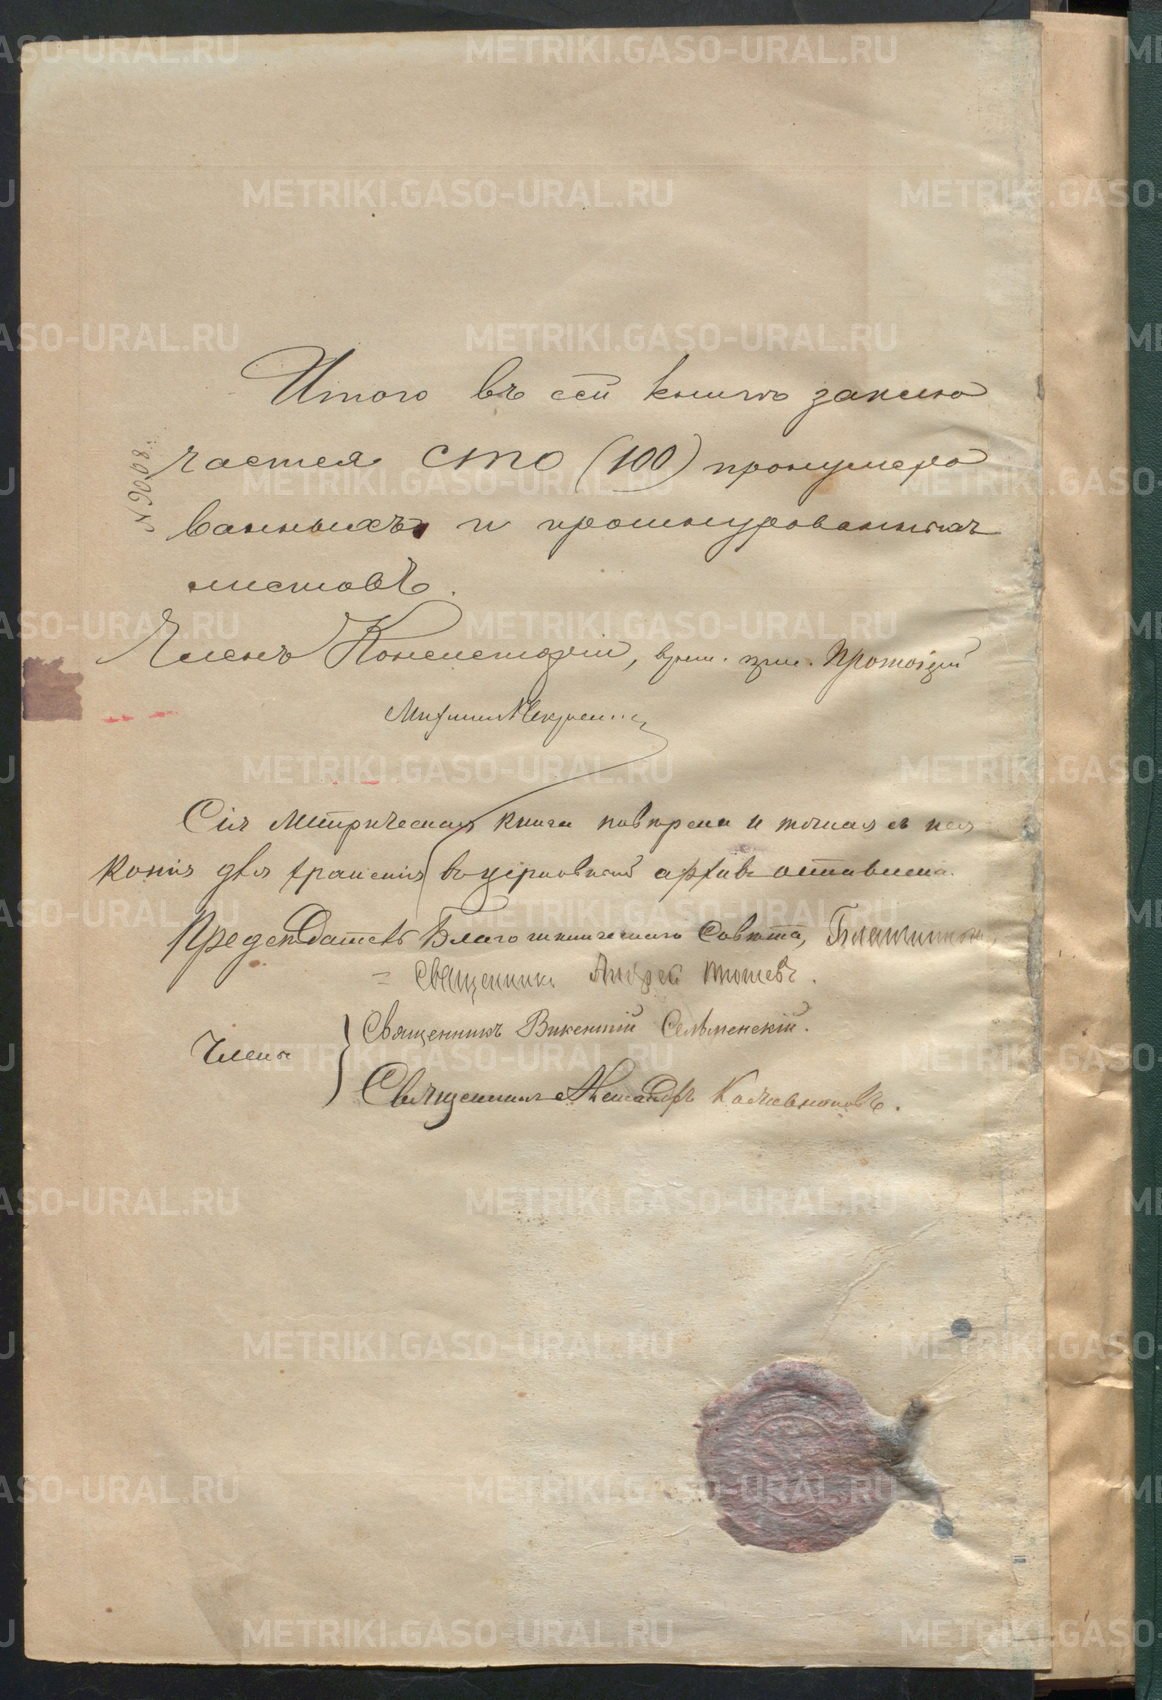 Итого въ сей книгѣ заклю
чается сто (100) пронумеро
ванныхъ и прошнурованныхъ
листовъ.
№ 9008.
Членъ Консисторіи, Протоіерей
Михаилъ
Сія Метрическая книга повѣрена и точная съ нея
копія для храненія въ церковный архивъ оставлена.
Председатель Благочинническаго Совѣта, Благочинный,
= Священникъ Андрей
Члены } Священникъ Викентій Сельменскій.
Священникъ Александръ
METRIKI.GASO-URAL.RU